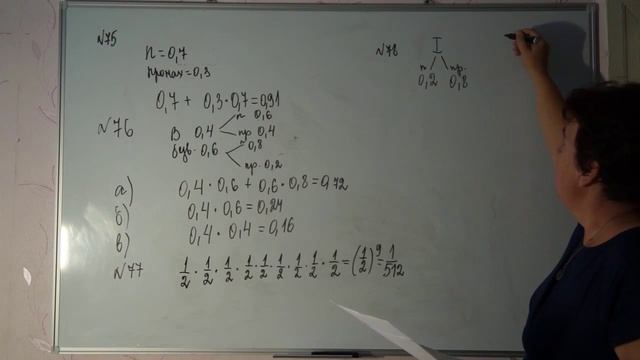 №75
п = 0,7
промах = 0,3
0,7 + 0,3·0,7 = 0,91
№76
п 0,6
В 0,4
пр 0,4
0,8
був. 0,6
пр. 0,2
а) 0,4 · 0,6 + 0,6 · 0,8 = 0,72
б) 0,4 · 0,6 = 0,24
в) 0,4 · 0,4 = 0,16
№77 1/2 · 1/2 · 1/2 · 1/2 · 1/2 · 1/2 · 1/2 · 1/2 · 1/2 = (1/2)⁹ = 1/512
№78 I
п пр.
0,2 0,8